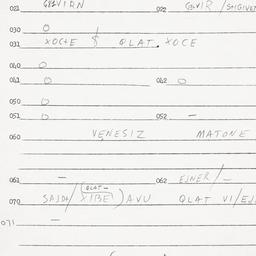 021 GAVIRN 022 GAVIR / SHGIVET
030 O
031 XOCE & QLAT. XOCE
040 O
041 O 042 O
050 O
051 O 052 –
060 VENESIZ MATONE
061 – 062 EJNER/–
070 SAJDA/(QLAT– XIBE) AVU QLAT VI/EJ
071 –